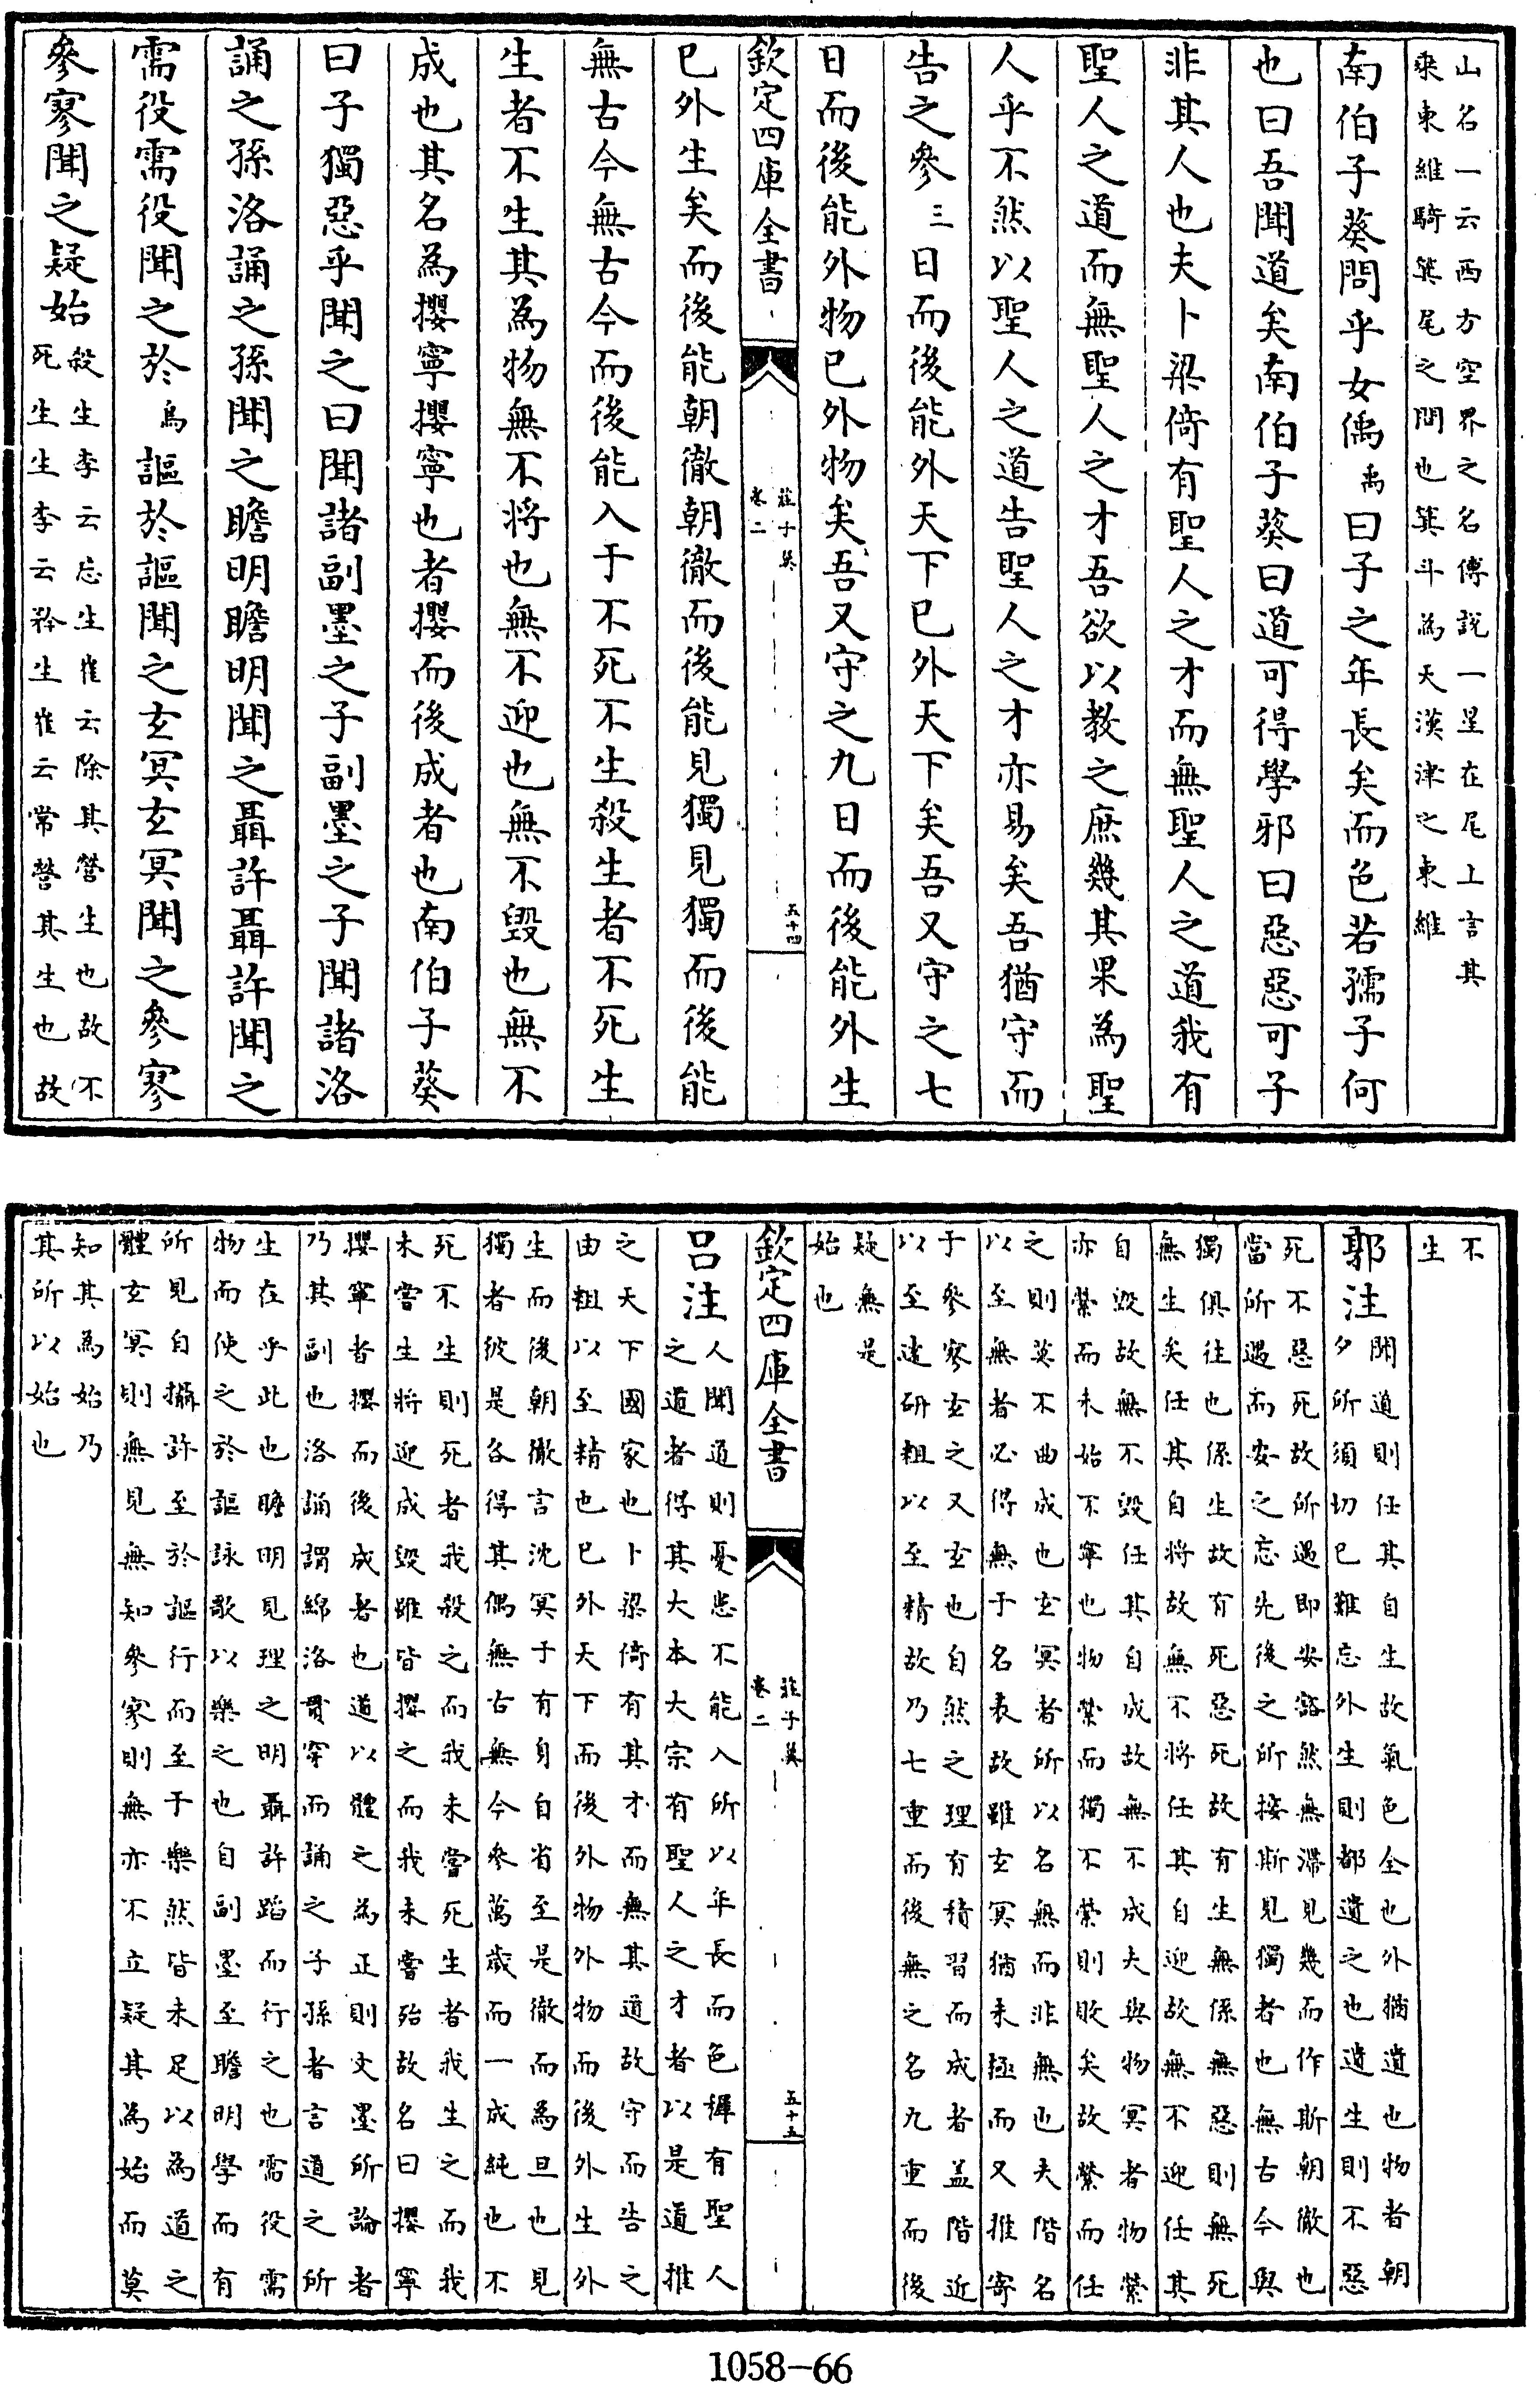 山名一云西方空界之名傅說一星在尾上言其
乘東維騎箕尾之間也箕斗為天漢津之東維
南伯子葵問乎女偊禹曰子之年長矣而色若孺子何
也曰吾聞道矣南伯子葵曰道可得學邪曰惡惡可子
非其人也夫卜梁倚有聖人之才而無聖人之道我有
聖人之道而無聖人之才吾欲以教之庶幾其果為聖
人乎不然以聖人之道告聖人之才亦易矣吾猶守而
告之參三日而後能外天下已外天下矣吾又守之七
日而後能外物已外物矣吾又守之九日而後能外生
欽定四庫全書
莊子翼
卷二
五十四
已外生矣而後能朝徹朝徹而後能見獨見獨而後能
無古今無古今而後能入于不死不生殺生者不死生
生者不生其為物無不將也無不迎也無不毀也無不
成也其名為攖寧攖寧也者攖而後成者也南伯子葵
曰子獨惡乎聞之曰聞諸副墨之子副墨之子聞諸洛
誦之孫洛誦之孫聞之瞻明瞻明聞之聶許聶許聞之
需役需役聞之於烏謳於謳聞之玄冥玄冥聞之參寥
參寥聞之疑始
殺生李云忘生崔云除其營生也故不
死生生李云矜生崔云常營其生也故
不
生
郭注
聞道則任其自生故氣色全也外猶遺也物者朝
夕所須切已難忘外生則都遺之也遺生則不惡
死不惡死故所遇即安豁然無滯見幾而作斯朝徹也
當所遇而安之忘先後之所接斯見獨者也無古今與
獨俱往也係生故有死惡死故有生無係無惡則無死
無生矣任其自將故無不將任其自迎故無不迎任其
自毀故無不毀任其自成故無不成夫與物冥者物縈
亦縈而未始不寧也物縈而獨不縈則敗矣故縈而任
之則莫不曲成也玄冥者所以名無而非無也夫階名
以至無者必得無于名表故雖玄冥猶未極而又推寄
于參寥玄之又玄也自然之理有積習而成者蓋階近
以至遠研粗以至精故乃七重而後無之名九重而後
疑無是
始也
欽定四庫全書
莊子翼
卷二
五十五
呂注
人聞道則憂患不能入所以年長而色稺有聖人
之道者得其大本大宗有聖人之才者以是道推
之天下國家也卜梁倚有其才而無其道故守而告之
由粗以至精也已外天下而後外物外物而後外生外
生而後朝徹言沈冥于有身自省至是徹而為旦也見
獨者彼是各得其偶無古無今參萬歲而一成純也不
死不生則死者我殺之而我未嘗死生者我生之而我
未嘗生將迎成毀雖皆攖之而我未嘗殆故名曰攖寧
攖寧者攖而後成者也道以體之為正則文墨所論者
乃其副也洛誦謂綿洛貫穿而誦之子孫者言道之所
生在乎此也瞻明見理之明聶許蹈而行之也需役需
物而使之於謳詠歌以樂之也自副墨至瞻明學而有
所見自攝許至於謳行而至于樂然皆未足以為道之
體玄冥則無見無知參寥則無亦不立疑其為始而莫
知其為始乃
其所以始也
1058-66